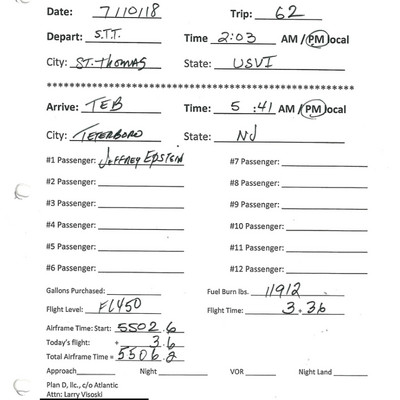 Date: 7/10/18 Trip: 62
Depart: S.T.T. Time 2:03 AM / PM local
City: ST. THOMAS State: USVI
************************************************
Arrive: TEB Time: 5 :41 AM / PM local
City: TETERBORO State: NJ
#1 Passenger: JEFFREY EPSTEIN #7 Passenger:
#2 Passenger: #8 Passenger:
#3 Passenger: #9 Passenger:
#4 Passenger: #10 Passenger:
#5 Passenger: #11 Passenger:
#6 Passenger: #12 Passenger:
Gallons Purchased: Fuel Burn lbs. 11912
Flight Level: FL450 Flight Time: 3.36
Airframe Time: Start: 5502.6
Today's flight: + 3.6
Total Airframe Time = 5506.2
Approach Night VOR Night Land
Plan D, llc., c/o Atlantic
Attn: Larry Visoski